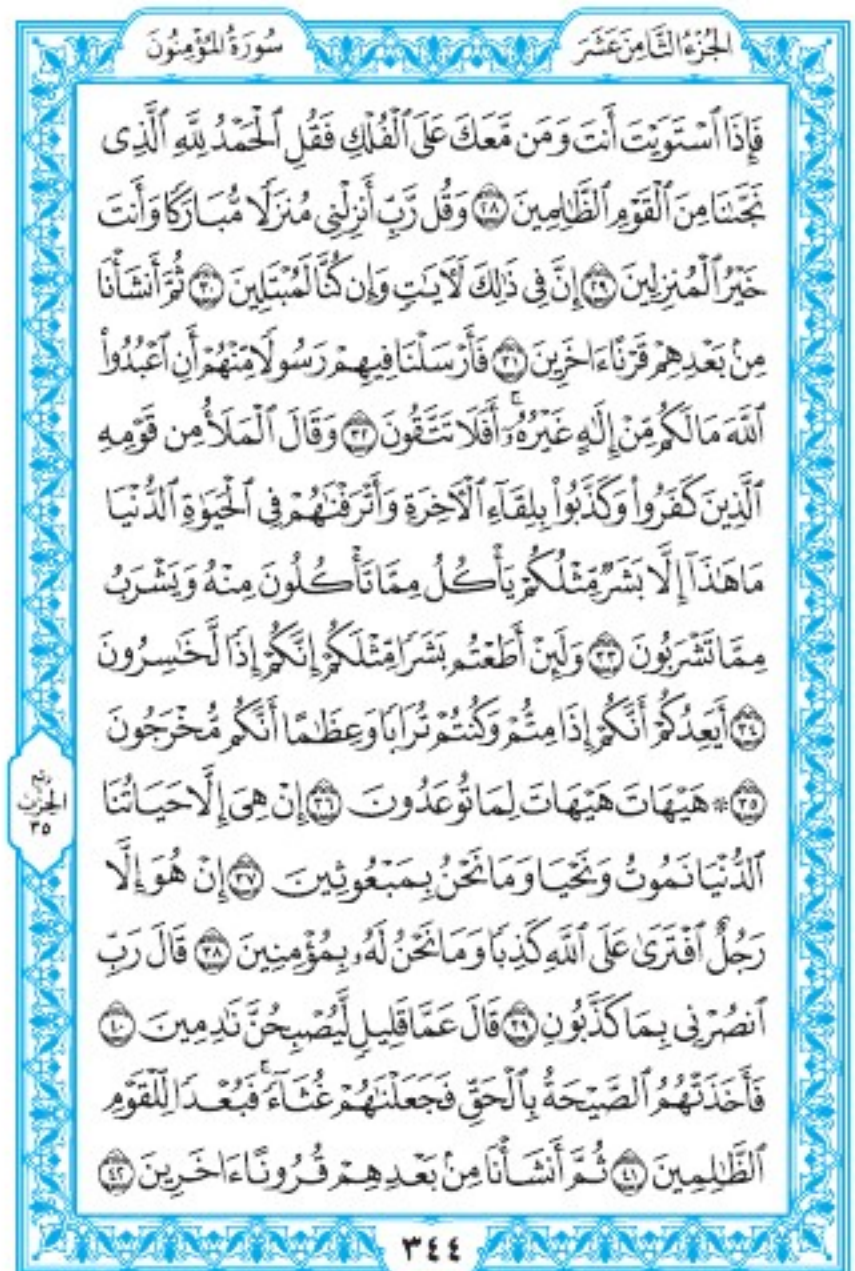 الجُزْءُ الثَّامِنَ عَشَرَ
سُورَةُ المُؤْمِنُونَ
فَإِذَا ٱسْتَوَيْتَ أَنتَ وَمَن مَّعَكَ عَلَى ٱلْفُلْكِ فَقُلِ ٱلْحَمْدُ لِلَّهِ ٱلَّذِى
نَجَّىٰنَا مِنَ ٱلْقَوْمِ ٱلظَّٰلِمِينَ ٢٨ وَقُل رَّبِّ أَنزِلْنِى مُنزَلًا مُّبَارَكًا وَأَنتَ
خَيْرُ ٱلْمُنزِلِينَ ٢٩ إِنَّ فِى ذَٰلِكَ لَءَايَٰتٍ وَإِن كُنَّا لَمُبْتَلِينَ ٣٠ ثُمَّ أَنشَأْنَا
مِنۢ بَعْدِهِمْ قَرْنًا ءَاخَرِينَ ٣١ فَأَرْسَلْنَا فِيهِمْ رَسُولًا مِّنْهُمْ أَنِ ٱعْبُدُوا۟
ٱللَّهَ مَا لَكُم مِّنْ إِلَٰهٍ غَيْرُهُۥٓ ۚ أَفَلَا تَتَّقُونَ ٣٢ وَقَالَ ٱلْمَلَأُ مِن قَوْمِهِ
ٱلَّذِينَ كَفَرُوا۟ وَكَذَّبُوا۟ بِلِقَآءِ ٱلْءَاخِرَةِ وَأَتْرَفْنَٰهُمْ فِى ٱلْحَيَوٰةِ ٱلدُّنْيَا
مَا هَٰذَآ إِلَّا بَشَرٌ مِّثْلُكُمْ يَأْكُلُ مِمَّا تَأْكُلُونَ مِنْهُ وَيَشْرَبُ
مِمَّا تَشْرَبُونَ ٣٣ وَلَئِنْ أَطَعْتُم بَشَرًا مِّثْلَكُمْ إِنَّكُمْ إِذًا لَّخَٰسِرُونَ
٣٤ أَيَعِدُكُمْ أَنَّكُمْ إِذَا مِتُّمْ وَكُنتُمْ تُرَابًا وَعِظَٰمًا أَنَّكُم مُّخْرَجُونَ
٣٥ ۞ هَيْهَاتَ هَيْهَاتَ لِمَا تُوعَدُونَ ٣٦ إِنْ هِىَ إِلَّا حَيَاتُنَا
ٱلدُّنْيَا نَمُوتُ وَنَحْيَا وَمَا نَحْنُ بِمَبْعُوثِينَ ٣٧ إِنْ هُوَ إِلَّا
رَجُلٌ ٱفْتَرَىٰ عَلَى ٱللَّهِ كَذِبًا وَمَا نَحْنُ لَهُۥ بِمُؤْمِنِينَ ٣٨ قَالَ رَبِّ
ٱنصُرْنِى بِمَا كَذَّبُونِ ٣٩ قَالَ عَمَّا قَلِيلٍ لَّيُصْبِحُنَّ نَٰدِمِينَ ٤٠
فَأَخَذَتْهُمُ ٱلصَّيْحَةُ بِٱلْحَقِّ فَجَعَلْنَٰهُمْ غُثَآءً ۚ فَبُعْدًا لِّلْقَوْمِ
ٱلظَّٰلِمِينَ ٤١ ثُمَّ أَنشَأْنَا مِنۢ بَعْدِهِمْ قُرُونًا ءَاخَرِينَ ٤٢
ربع
الحزب
٣٥
٣٤٤